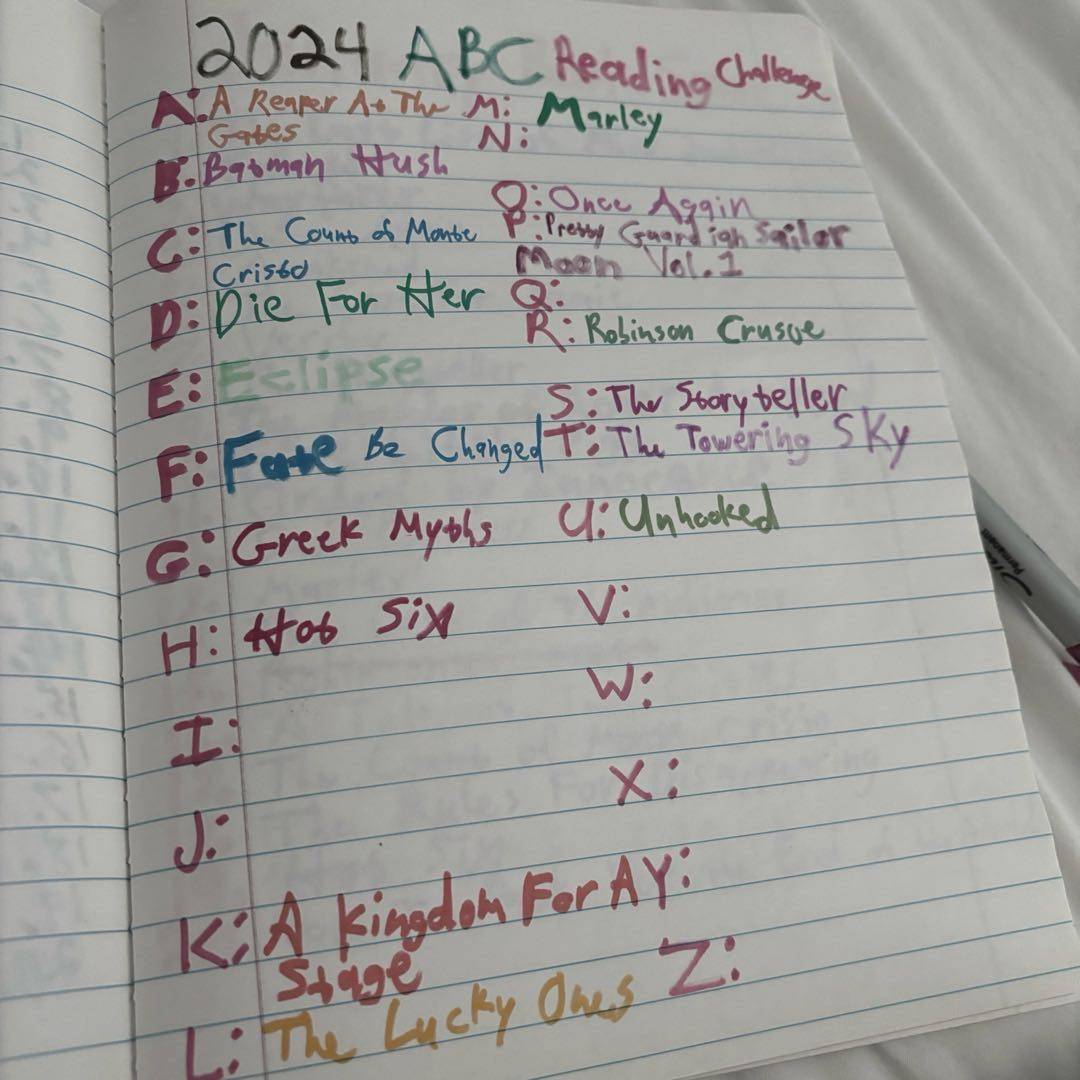 2024 ABC Reading Challenge
A: A Reaper At The
Gates
B: Batman Hush
C: The Count of Monte
Cristo
D: Die For Her
E: Eclipse
F: Fate Be Changed
G: Greek Myths
H: Hot Six
I:
J:
K: A Kingdom For A
Stage
L: The Lucky Ones
M: Marley
N:
O: Once Again
P: Pretty Guardian Sailor
Moon Vol. 1
Q:
R: Robinson Crusoe
S: The Storyteller
T: The Towering Sky
U: Unhooked
V:
W:
X:
Y:
Z: